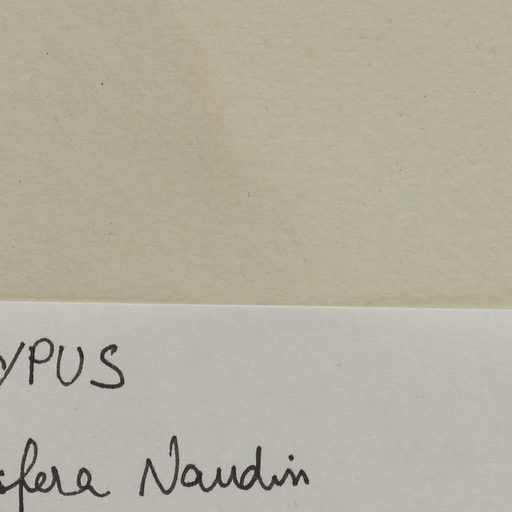 YPUS
fera Naudin